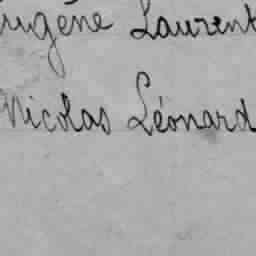 Eugène Laurent
Nicolas Léonard